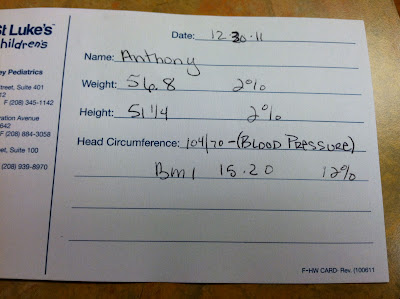 St Luke's
Children's
ey Pediatrics
treet, Suite 401
12
F (208) 345-1142
ration Avenue
642
F (208) 884-3058
eet, Suite 100
(208) 939-8970
Date: 12 30.11
Name: Anthony
Weight: 56.8 2%
Height: 51 1/4 2%
Head Circumference: 104/70-(BLOOD PRESSURE)
Bm1 15.20 12%
F-HW CARD- Rev. (100611